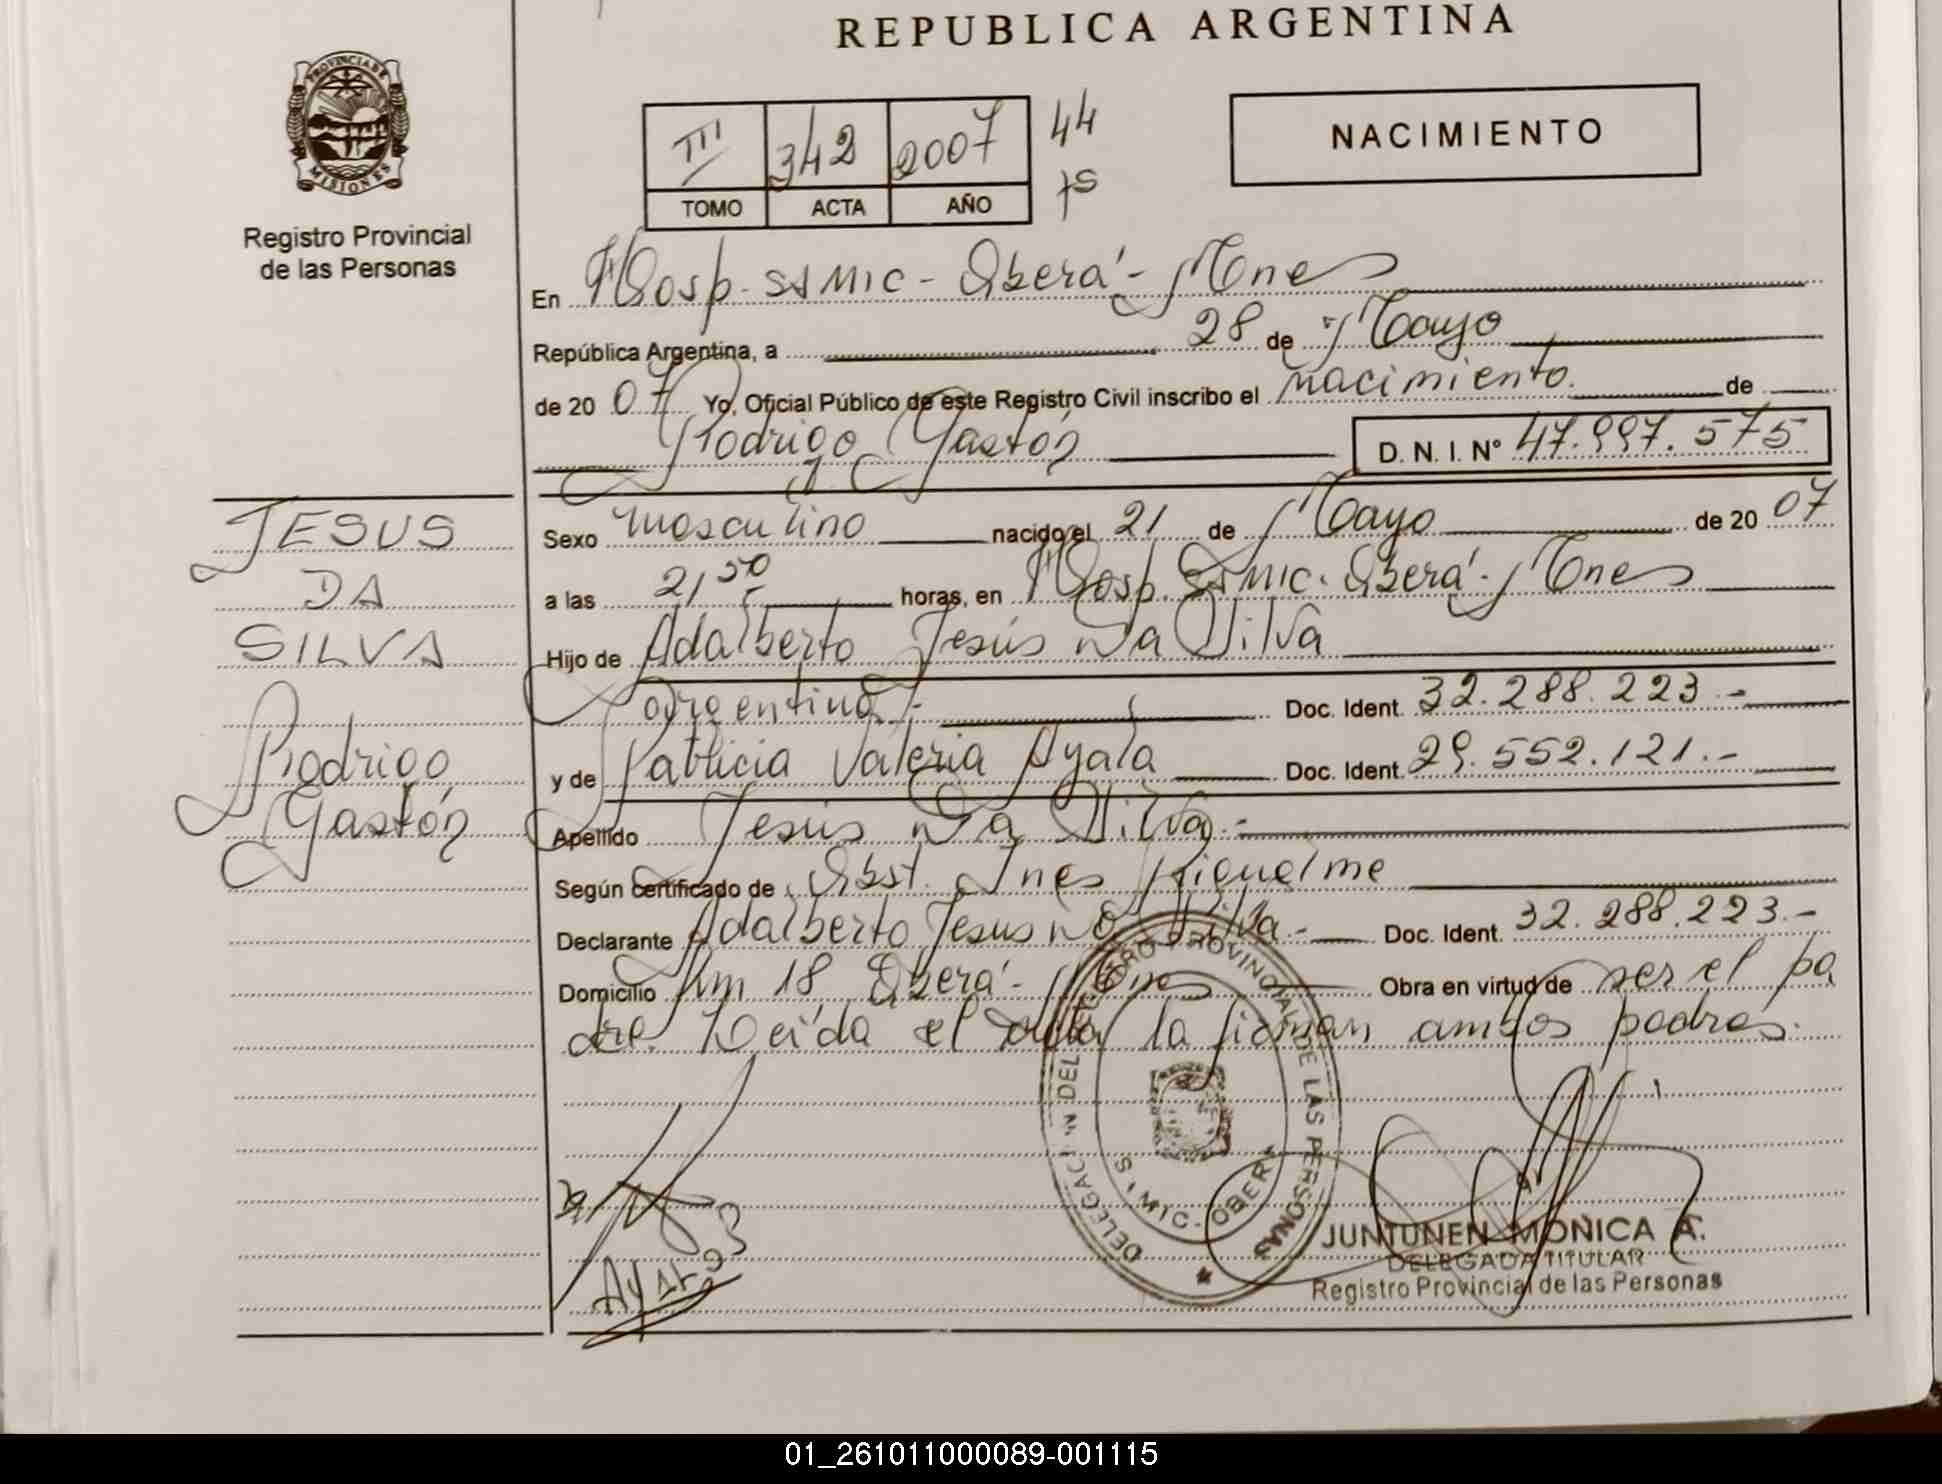 REPUBLICA ARGENTINA
PROVINCIA DE
MISIONES
Registro Provincial
de las Personas
III 342 2007 44
TOMO ACTA AÑO 75
NACIMIENTO
En Hosp. SAMIC - Oberá - Mnes
República Argentina, a 28 de Mayo
de 20 07 Yo, Oficial Público de este Registro Civil inscribo el nacimiento. de
Rodrigo Gastón D. N. I. Nº 47.997.575
JESUS
DA
SILVA
Rodrigo
Gastón
Sexo masculino nacido el 21 de Mayo de 20 07
a las 21 50 horas, en Hosp. SAMIC. Oberá - Mnes
Hijo de Adalberto Jesús Da Silva
argentino.- Doc. Ident. 32.288.223.-
y de Patricia Valeria Ayala Doc. Ident. 29.552.121.-
Apellido Jesús Da Silva.-
Según certificado de Obst. Ines Riquelme
Declarante Adalberto Jesus Da Silva.- Doc. Ident. 32.288.223.-
Domicilio Km 18 Oberá - Mnes Obra en virtud de ser el pa
dre. Leída el acta la firman ambos padres.
DELEGACI N DEL REGISTRO PROVINCIAL DE LAS PERSONAS
S MIC - OBER
Ayala
JUNTUNEN MONICA A.
DELEGADA TITULAR
Registro Provincial de las Personas
01_261011000089-001115